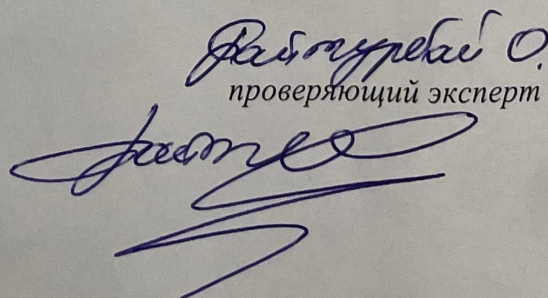 Байтурбай О.
проверяющий эксперт